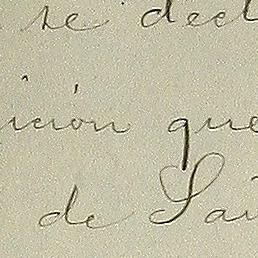 se decl
ición que
de Sai